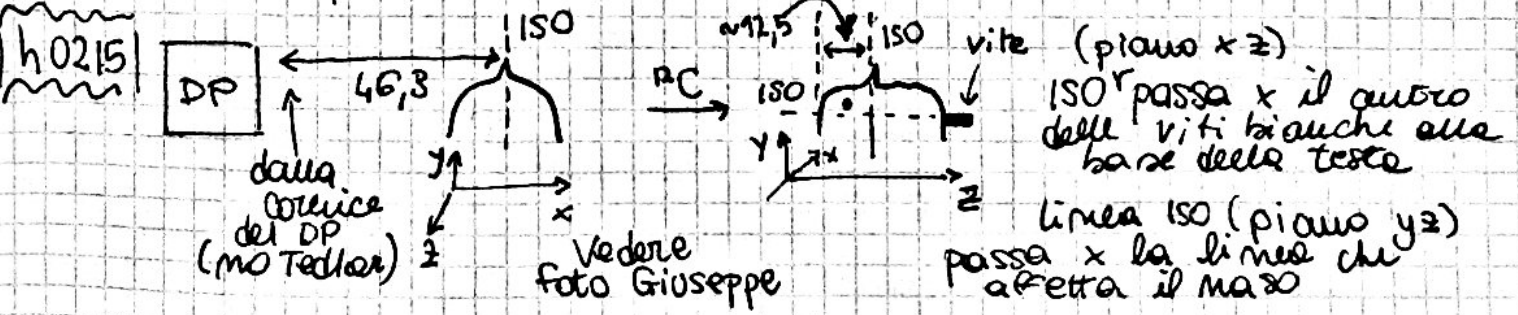 h 0215
DP
46,3
ISO
dalla
cornice
del DP
(no Tedlar)
y
x
z
Vedere
foto Giuseppe
PC
~12,5
ISO
ISO
vite
y
x
z
(piano x z)
ISO passa x il centro
delle viti bianche alla
base della testa
linea ISO (piano yz)
passa x la linea che
affetta il naso